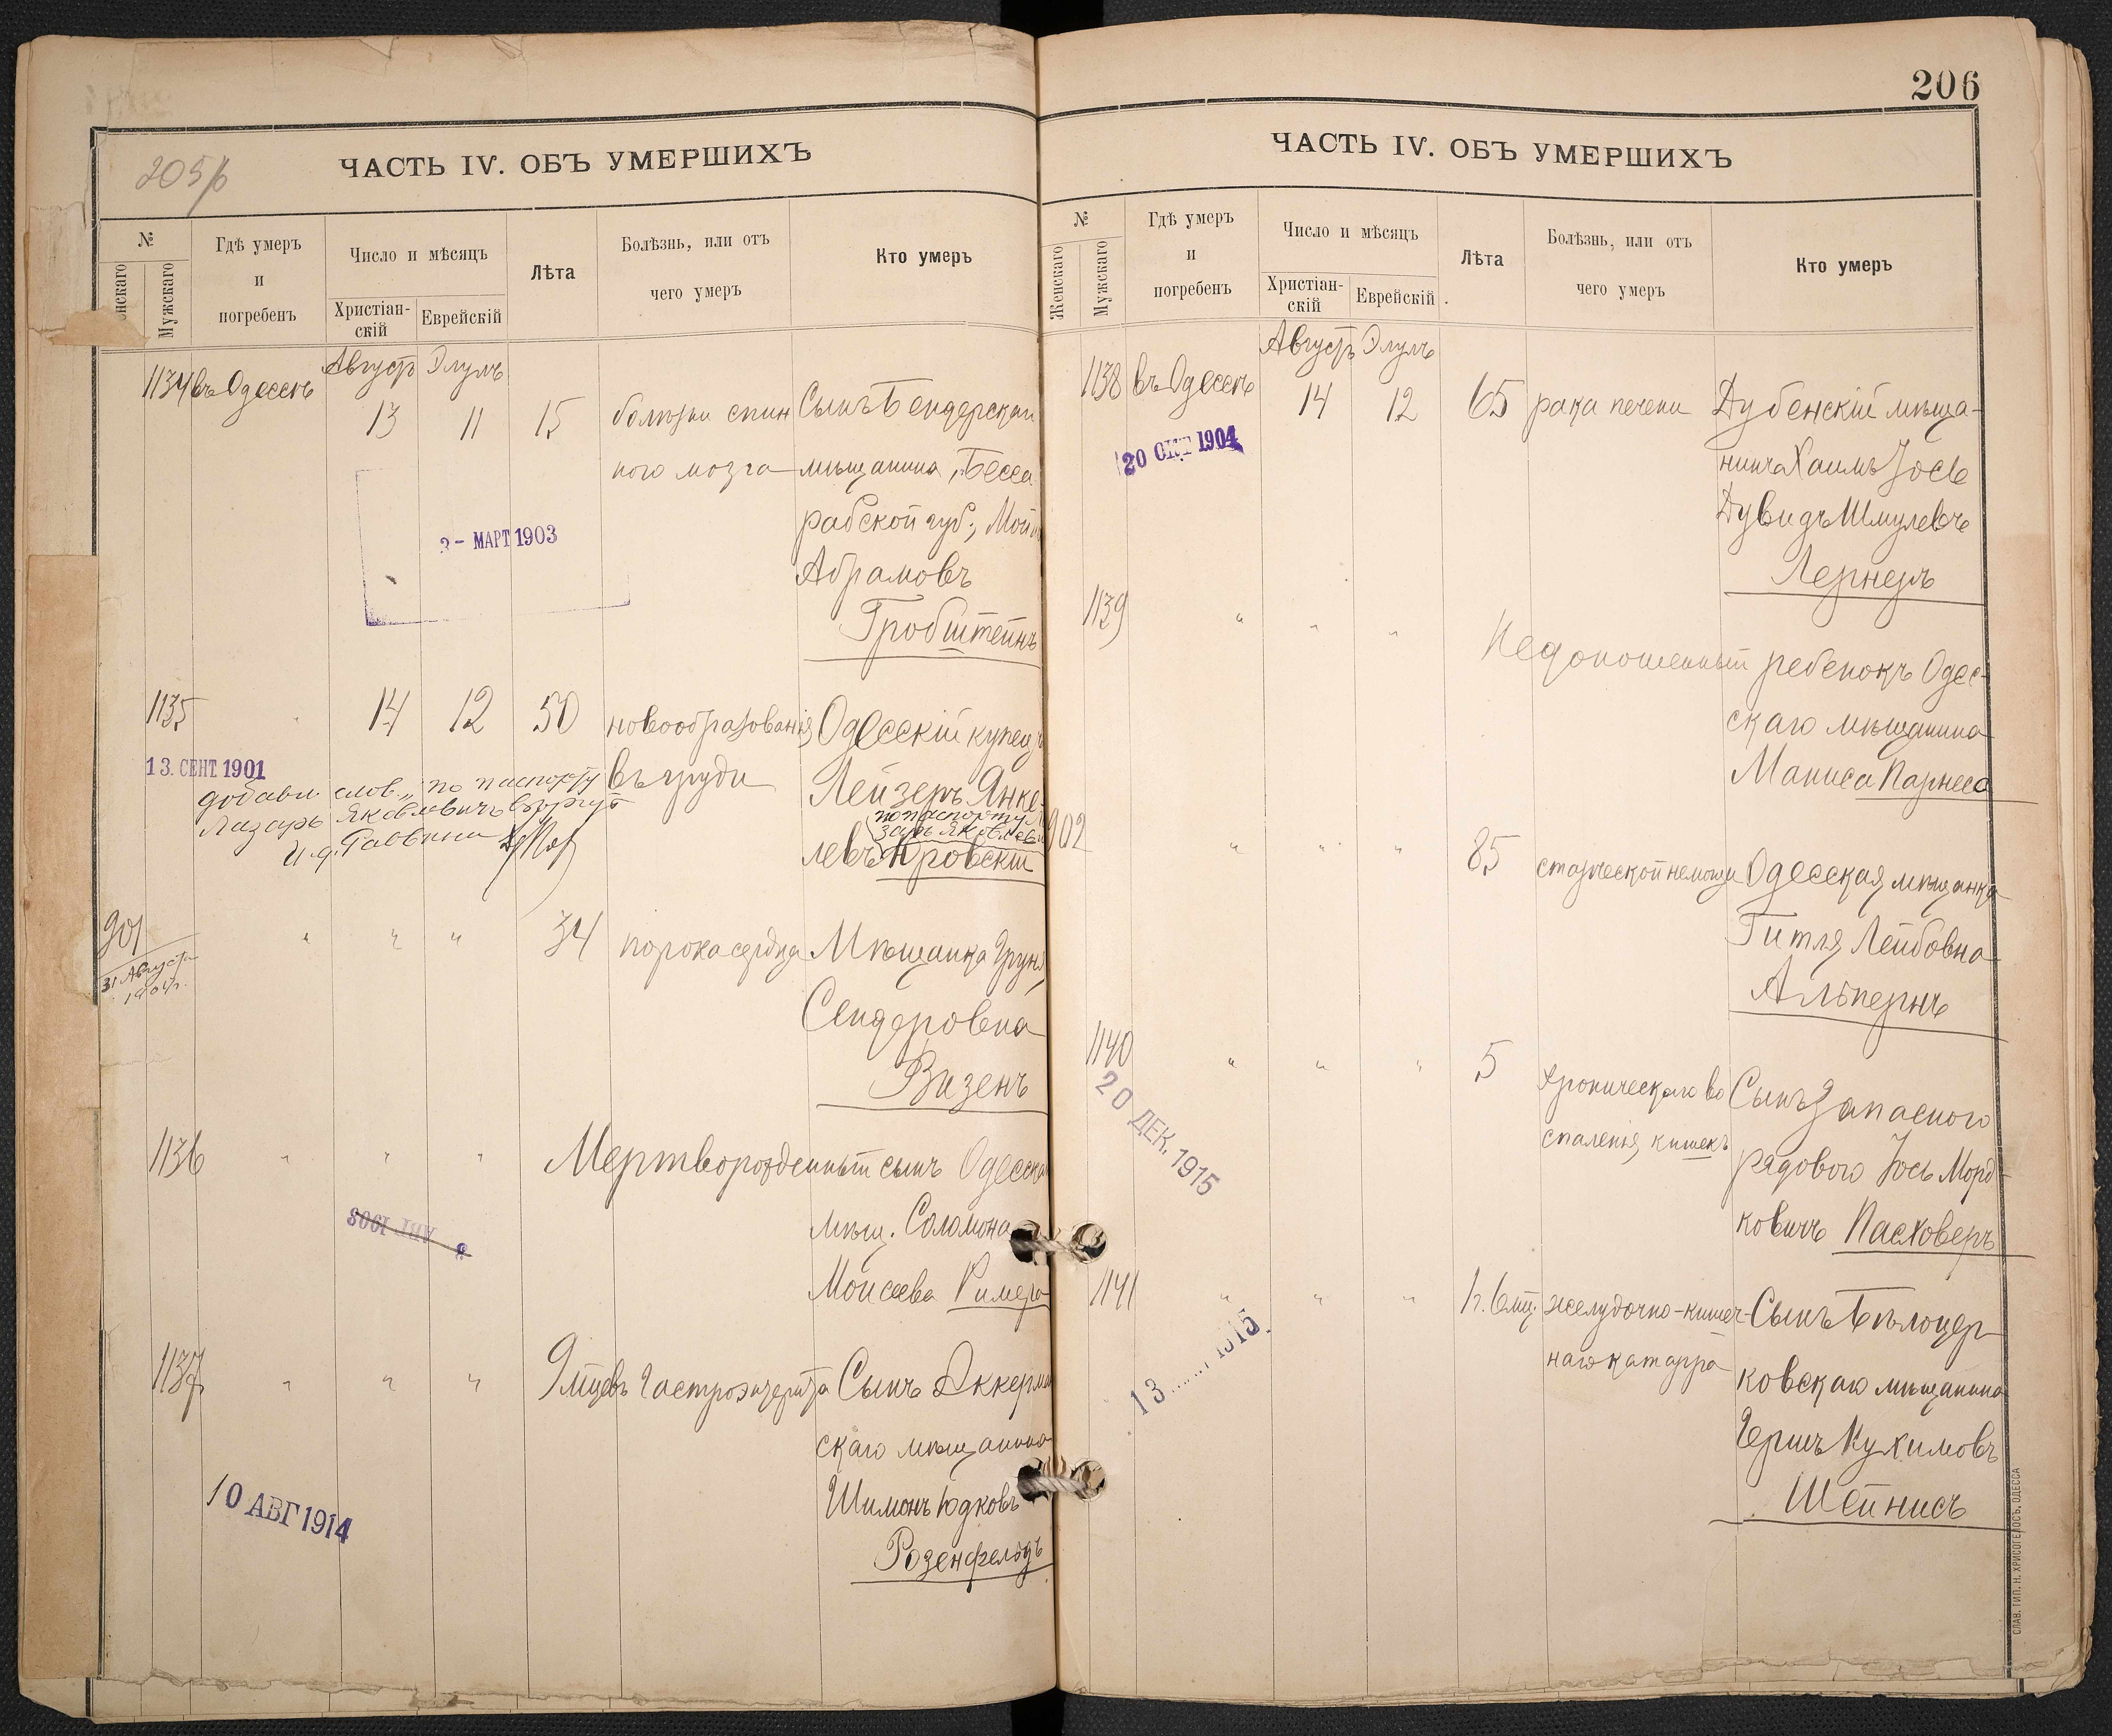 205/b
ЧАСТЬ IV. ОБЪ УМЕРШИХЪ
№
Женскаго
Мужскаго
Гдѣ умеръ
и
погребенъ
Число и мѣсяцъ
Христіан-
скій
Еврейскій
Лѣта
Болѣзнь, или отъ
чего умеръ
Кто умеръ
Августъ Элулъ
1134 въ Одессѣ 13 11 15 болѣзни спин Сынъ Бендерскаго
ного мозга мѣщанина, Бесса
рабской губ.,
Абрамовъ
Гробштейнъ
3 - МАРТ 1903
1135 " 14 12 50 новообразованія Одесскій купецъ
въ груди Лейзеръ Янке-
по паспорту Ла
заръ Яковлев
левъ Кровскій
13. СЕНТ. 1901
добавл. слов. „по паспорту
Лазарь Яковлевичъ
И. д. Раввина
901 " " " 34 порока сердца Мѣщанка Груня
31 Августа
1904г.
Сендеровна
Визенъ
1136 " " " Мертворожденный сынъ Одесскаго
мѣщ. Соломона
Моисеева Римера
АВГ 1908
1137 " " " 9 мцевъ Гастроэнтерита Сынъ Аккерман
скаго мѣщанина
Шимонъ Юдковъ
Розенфельдъ
10 АВГ 1914
206
ЧАСТЬ IV. ОБЪ УМЕРШИХЪ
№
Женскаго
Мужскаго
Гдѣ умеръ
и
погребенъ
Число и мѣсяцъ
Христіан-
скій
Еврейскій
Лѣта
Болѣзнь, или отъ
чего умеръ
Кто умеръ
Августъ Элулъ
1138 въ Одессѣ 14 12 65 рака печени Дубенскій мѣща-
нинъ Хаимъ Іосъ
Дувидъ Шмулевъ
Лернеръ
20 ОКТ 1904
1139 " " " Недоношенный ребенокъ Одес-
скаго мѣщанина
Маниса Парнеса
902 " " " 85 старческой немощи Одесская мѣщанка
Гитля Лейбовна
Альпернъ
1140 " " " 5 хроническаго во Сынъ Запасного
спаленія кишекъ рядового Іось Морд-
ковичъ Пасховеръ
20 ДЕК. 1915
1141 " " " 1г. 6мц. желудочно-кишеч- Сынъ Бѣлоцер
наго катарра ковскаго мѣщанина
Гершъ Нухимовъ
Шейнисъ
13 1915.
СЛАВ. ТИП. Н. ХРИСОГЕЛОСЪ, ОДЕССА